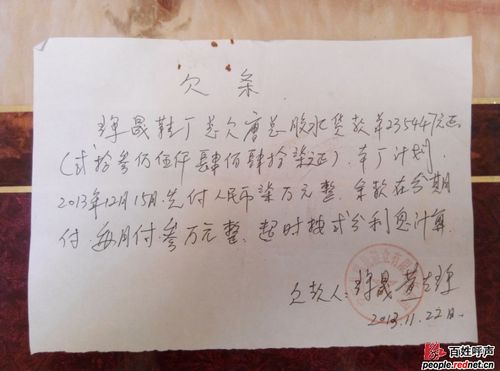 欠条
璋晟鞋厂总欠唐总胶水货款￥235447元正
(贰拾叁伍仟肆佰肆拾柒正).本厂计划
2013年12月15日先付人民币柒万元整.余款在分期
付.每月付叁万元整.超时按贰分利息计算.
欠款人:璋晟 黄
2013.11.22日.
百姓呼声
people.rednet.cn